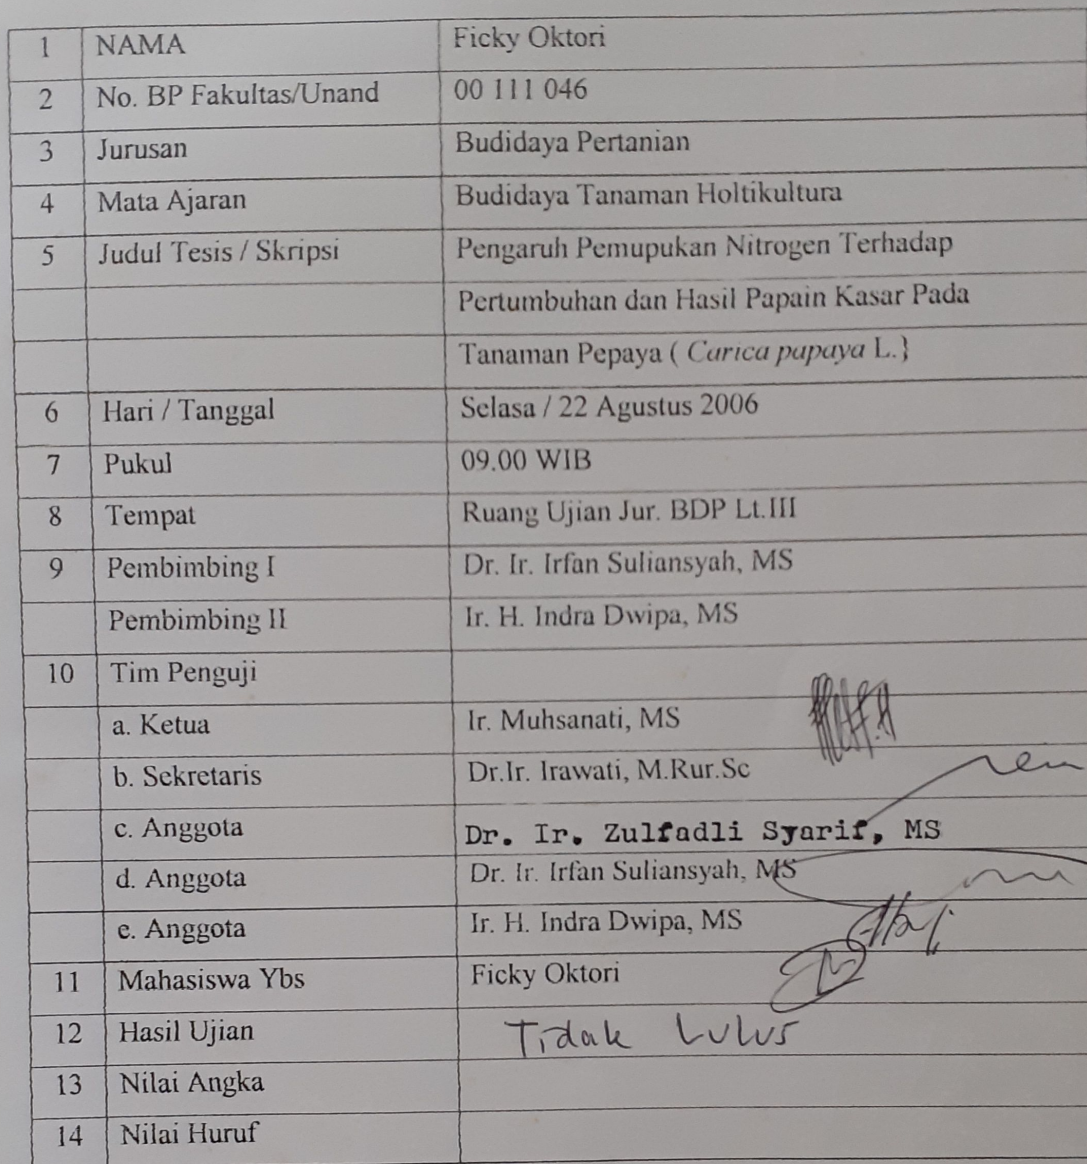 1 NAMA Ficky Oktori
2 No. BP Fakultas/Unand 00 111 046
3 Jurusan Budidaya Pertanian
4 Mata Ajaran Budidaya Tanaman Holtikultura
5 Judul Tesis / Skripsi Pengaruh Pemupukan Nitrogen Terhadap
Pertumbuhan dan Hasil Papain Kasar Pada
Tanaman Pepaya ( Carica papaya L.}
6 Hari / Tanggal Selasa / 22 Agustus 2006
7 Pukul 09.00 WIB
8 Tempat Ruang Ujian Jur. BDP Lt.III
9 Pembimbing I Dr. Ir. Irfan Suliansyah, MS
Pembimbing II Ir. H. Indra Dwipa, MS
10 Tim Penguji
a. Ketua Ir. Muhsanati, MS
b. Sekretaris Dr.Ir. Irawati, M.Rur.Sc
c. Anggota Dr. Ir. Zulfadli Syarif, MS
d. Anggota Dr. Ir. Irfan Suliansyah, MS
e. Anggota Ir. H. Indra Dwipa, MS
11 Mahasiswa Ybs Ficky Oktori
12 Hasil Ujian Tidak Lulus
13 Nilai Angka
14 Nilai Huruf